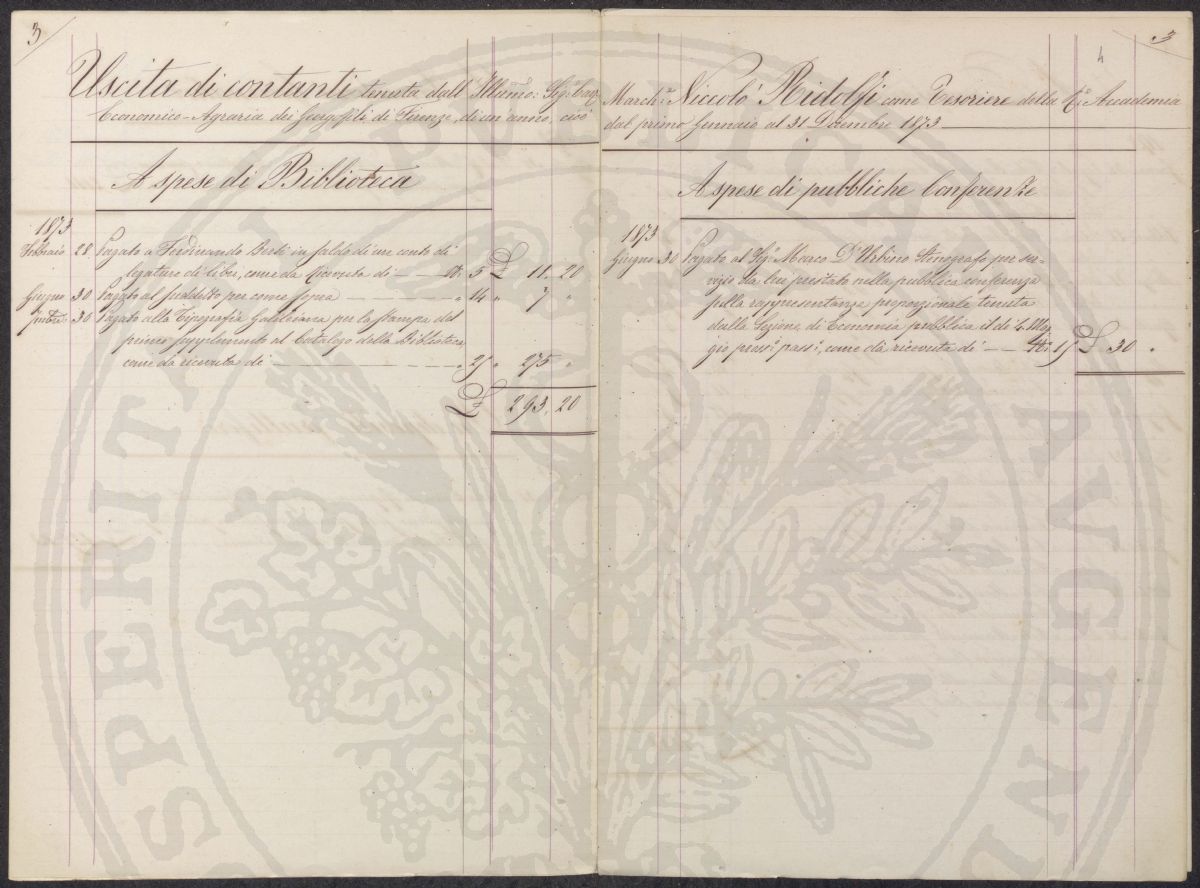 3
Uscita di contanti tenuta dall' Illumo: Sigr. Cav
Economico-Agraria dei Georgofili di Firenze, di un anno, cioè
A spese di Biblioteca
1873
Febbraio 28 Pagato a Ferdinando Berti in saldo di un conto di
legature di libri, come da ricevuta di — No. 5 L. 11. 20
Giugno 30 Pagato al suddetto per come sopra — " 14 " 7 "
9mbre 30 Pagato alla Tipografia Galileiana per la stampa del
primo supplemento al Catalogo della Biblioteca,
come da ricevuta di — " 25 " 275 "
L. 293. 20
3
4
Marche. Niccolò Ridolfi come Tesoriere della Ra. Accademia
dal primo Gennaio al 31 Dicembre 1873
A spese di pubbliche Conferenze
1873
Giugno 30 Pagato al Sigr. Marco D'Urbino Stenografo per ser-
vigio da lui prestato nella pubblica conferenza
sulla rappresentanza proporzionale tenuta
dalla Sezione di Economia pubblica il dì 4. Mag-
gio pross. pass., come da ricevuta di — No. 15 L. 30 "
SPERITATI PVBLICAE AVGENDAE